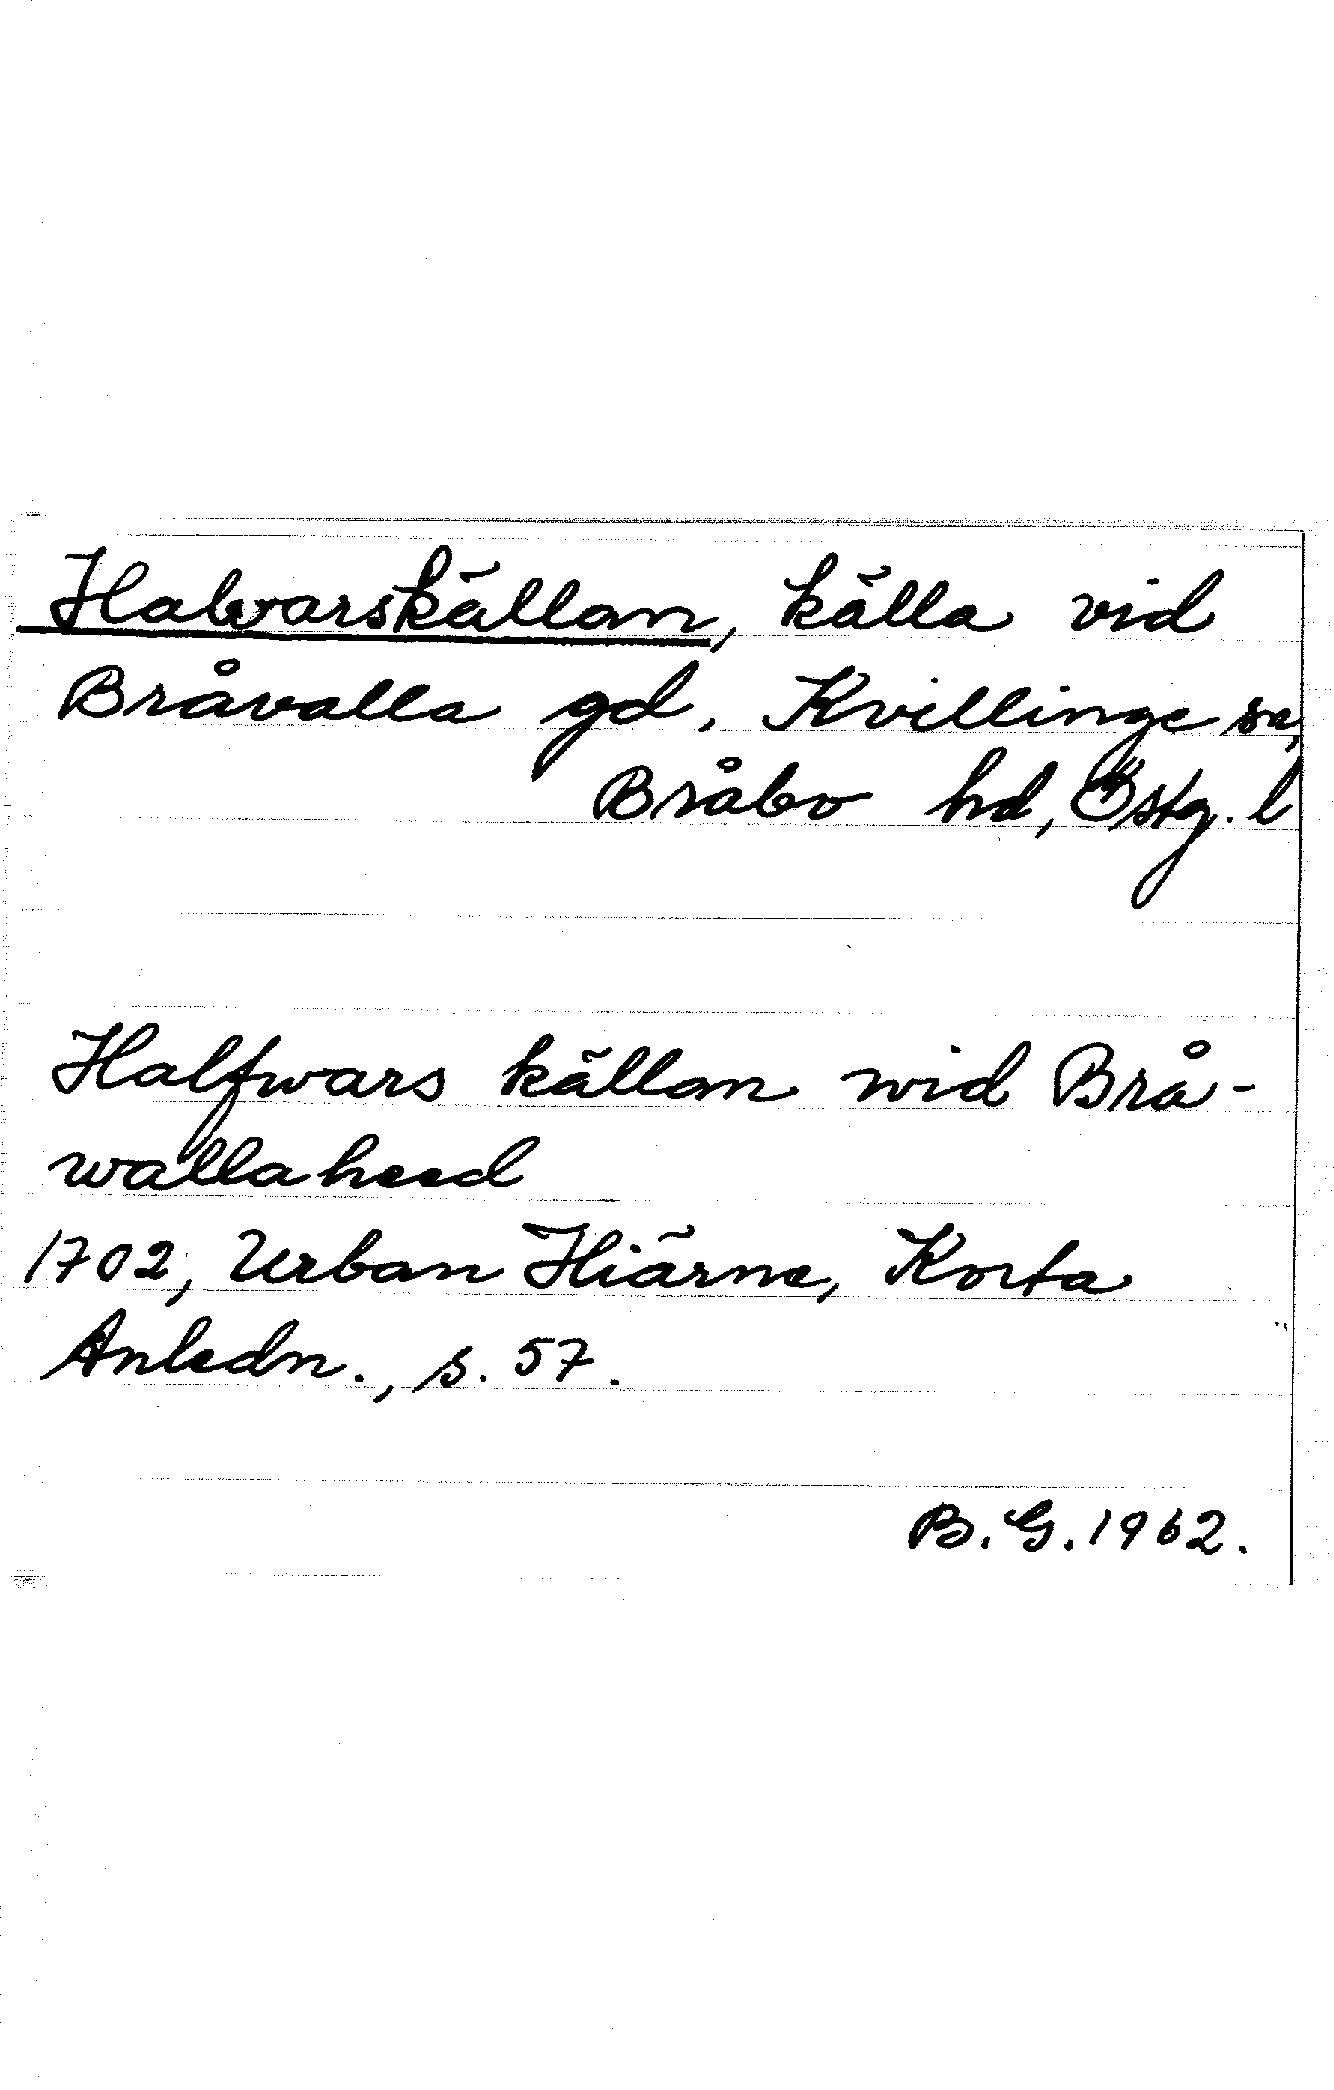 Halvarskällan, källa vid
Bråvalla gd, Kvillinge sn,
Bråbo hd, Östg. l
Halfwars källan wid Brå-
wallaheed
1702, Urban Hiärne, Korta
Anledn., s. 57.
B.G. 1962.